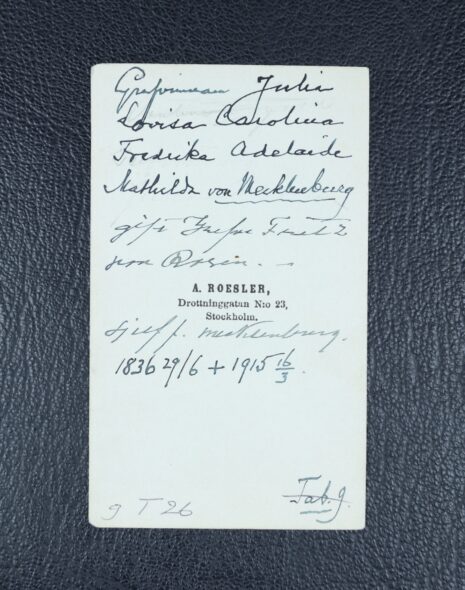 Grefvinnan Julia
Lovisa Carolina
Fredrika Adelaide
Mathilda von Mecklenburg
gift Grefve Fritz
von Rosen.
A. ROESLER,
Drottninggatan N:o 23,
Stockholm.
född f. Mecklenburg.
1836 29/6 + 1915 16/3.
Tab. 9.
9 T 26